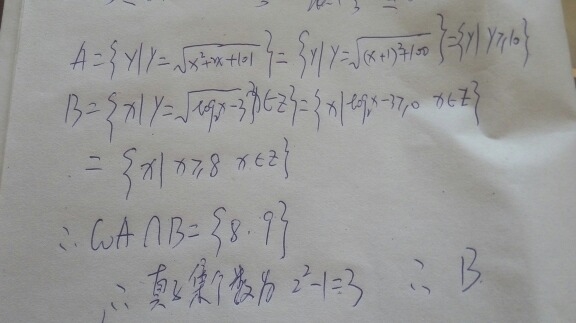 A={y|y=√(x²+2x+101)}={y|y=√((x+1)²+100)}={y|y≥10}
B={x|y=√(log₂x-3) x∈Z}={x|log₂x-3≥0 x∈Z}
={x|x≥8 x∈Z}
∴ CuA∩B={8.9}
∴ 真子集个数为 2²-1=3 ∴ B.